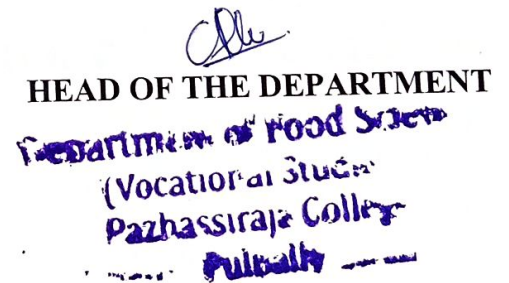 HEAD OF THE DEPARTMENT
Department of Food Scien
(Vocational Studi
Pazhassiraja College
Pulpally